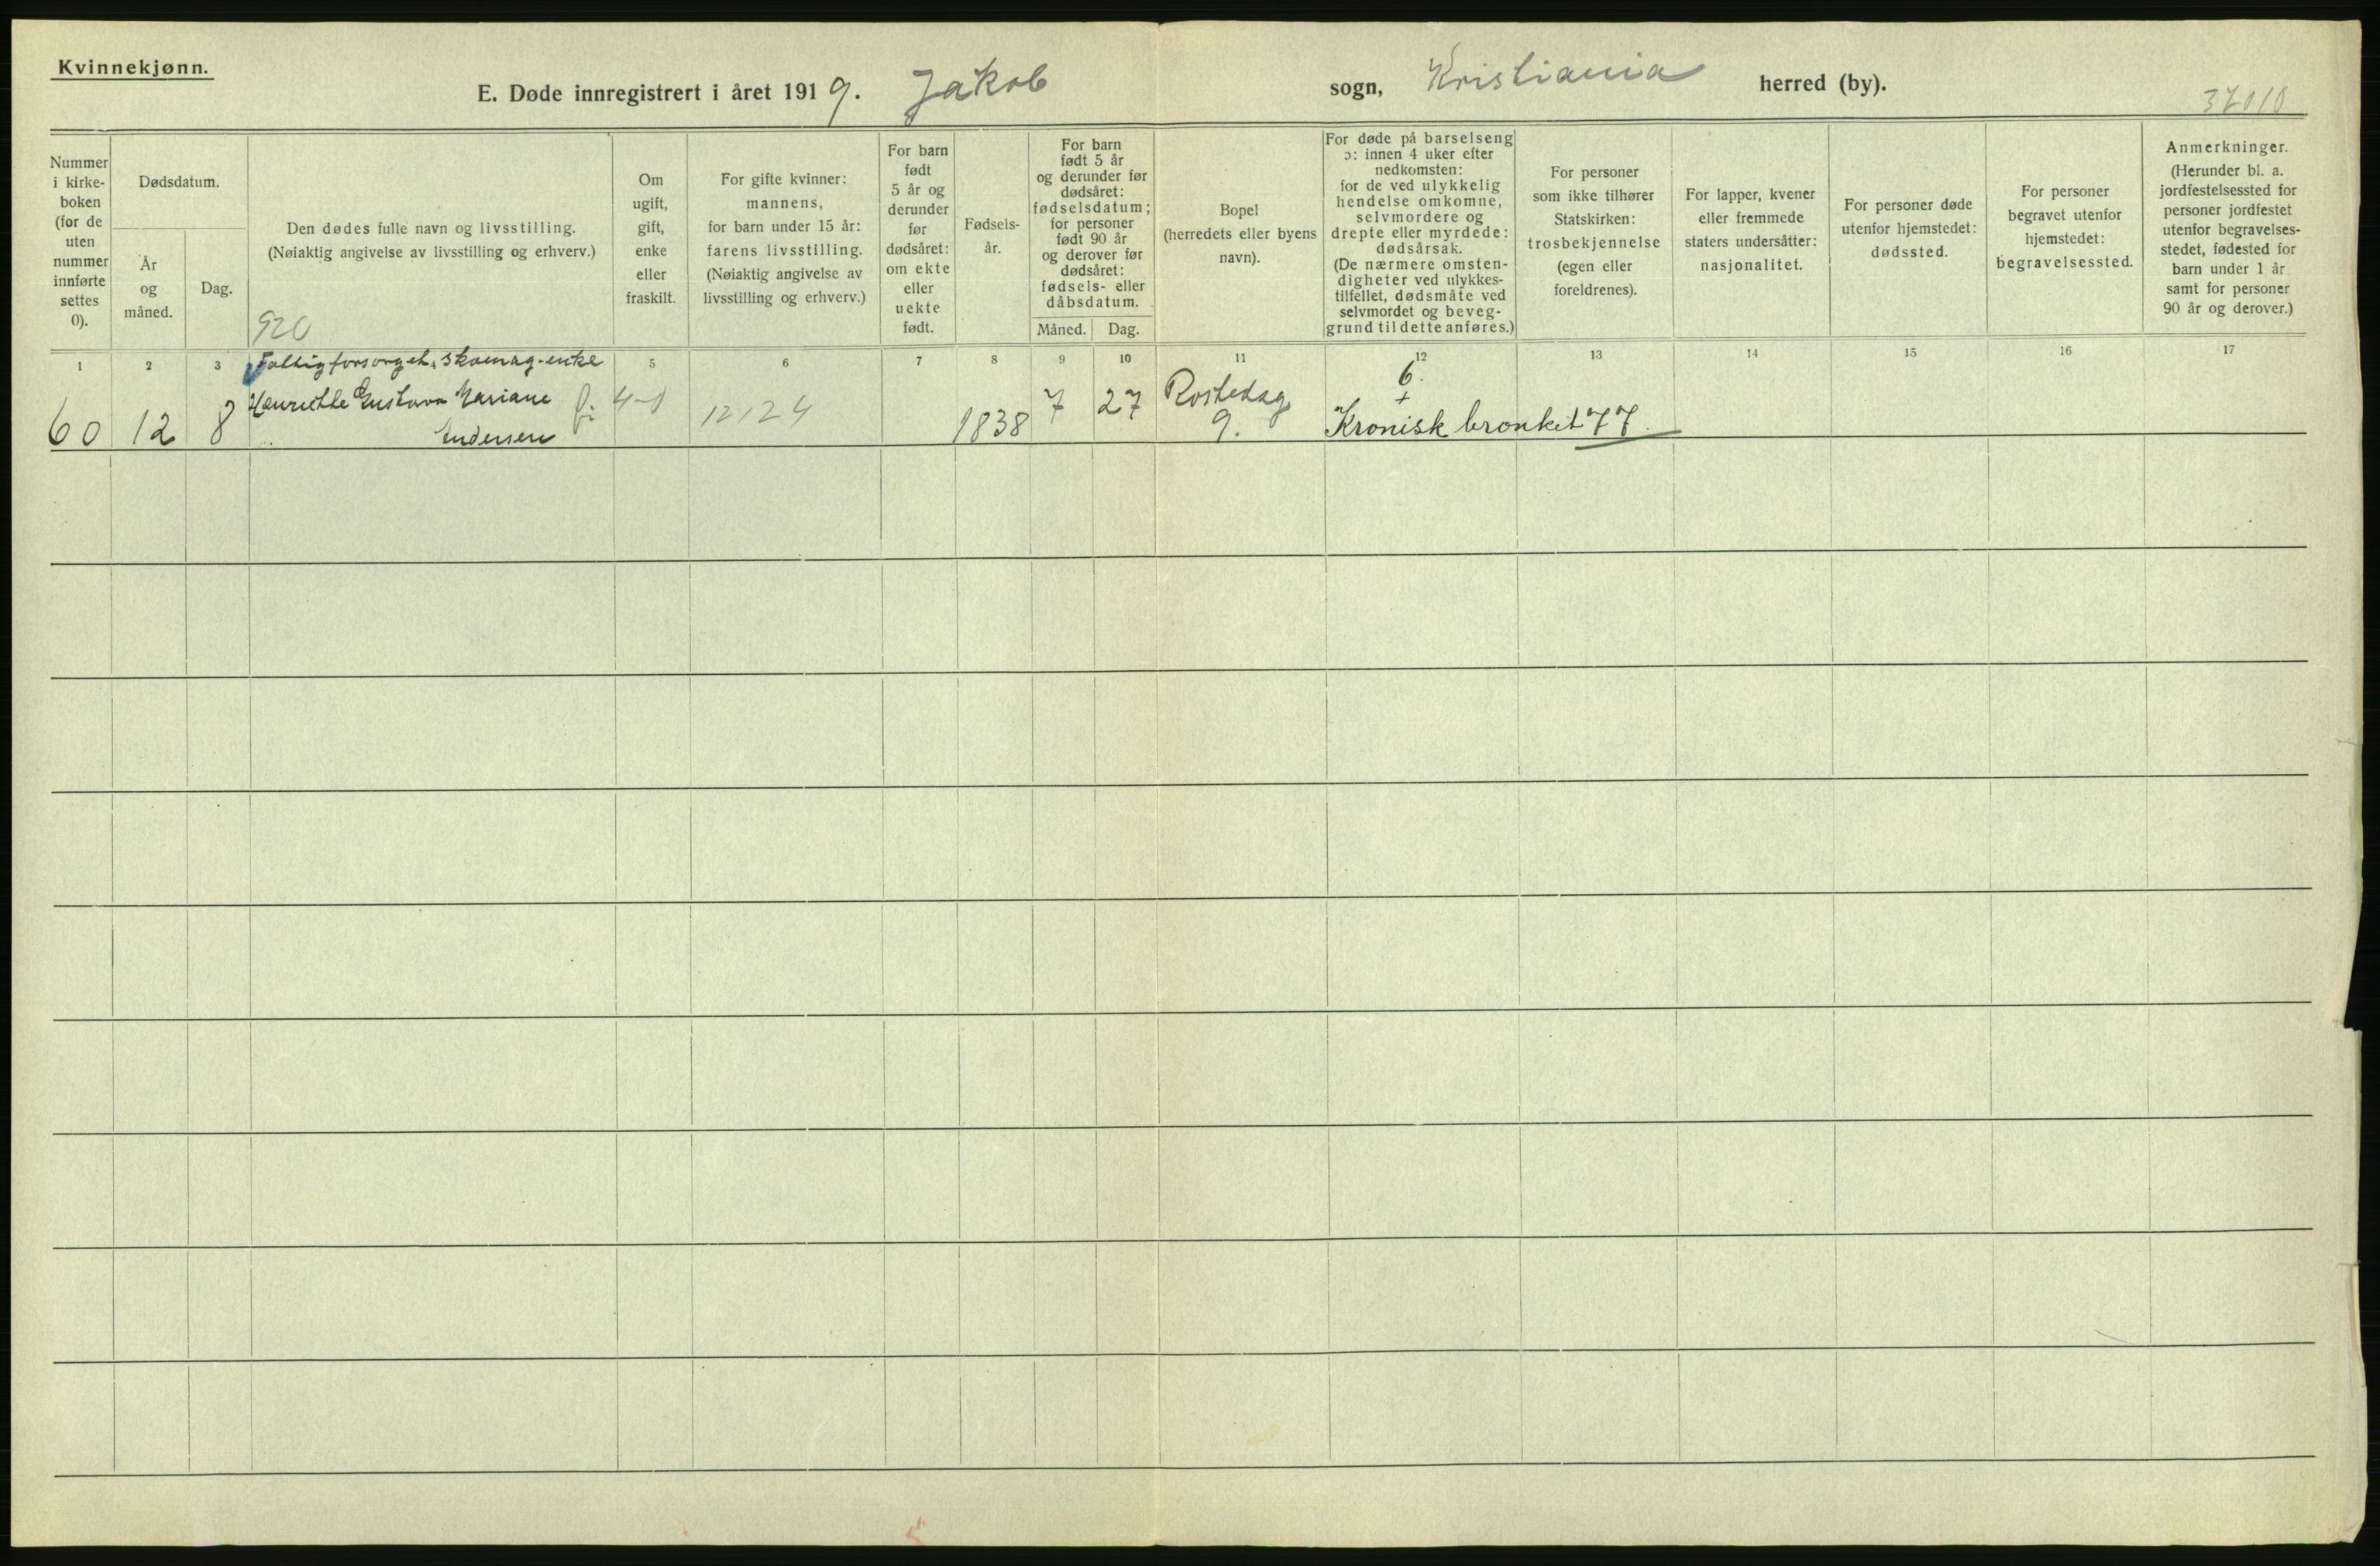 Kvinnekjønn.
E. Døde innregistrert i året 1919. Jakob sogn, Kristiania herred (by).
Nummer i kirke-boken (for de uten nummer innførte settes 0).
Dødsdatum.
År og måned.
Dag.
Den dødes fulle navn og livsstilling.
(Nøiaktig angivelse av livsstilling og erhverv.)
920
Om ugift, gift, enke eller fraskilt.
For gifte kvinner: mannens, for barn under 15 år: farens livsstilling. (Nøiaktig angivelse av livsstilling og erhverv.)
For barn født 5 år og derunder før dødsåret: om ekte eller uekte født.
Fødsels-år.
For barn født 5 år og derunder før dødsåret: fødselsdatum; for personer født 90 år og derover før dødsåret: fødsels- eller dåbsdatum.
Måned. Dag.
Bopel (herredets eller byens navn).
For døde på barselseng ɔ: innen 4 uker efter nedkomsten: for de ved ulykkelig hendelse omkomne, selvmordere og drepte eller myrdede: dødsårsak. (De nærmere omsten-digheter ved ulykkes-tilfellet, dødsmåte ved selvmordet og beveg-grund til dette anføres.)
For personer som ikke tilhører Statskirken: trosbekjennelse (egen eller foreldrenes).
For lapper, kvener eller fremmede staters undersåtter: nasjonalitet.
For personer døde utenfor hjemstedet: dødssted.
For personer begravet utenfor hjemstedet: begravelsessted.
Anmerkninger. (Herunder bl. a. jordfestelsessted for personer jordfestet utenfor begravelses-stedet, fødested for barn under 1 år samt for personer 90 år og derover.)
1 2 3 5 6 7 8 9 10 11 12 13 14 15 16 17
Fattigforsørget, skomag-enke
60 12 8 Henriette Gustava Mariane Andersen fi 12124 1838 7 27 Rostedsg 9. 6. + Kronisk bronkit 77.